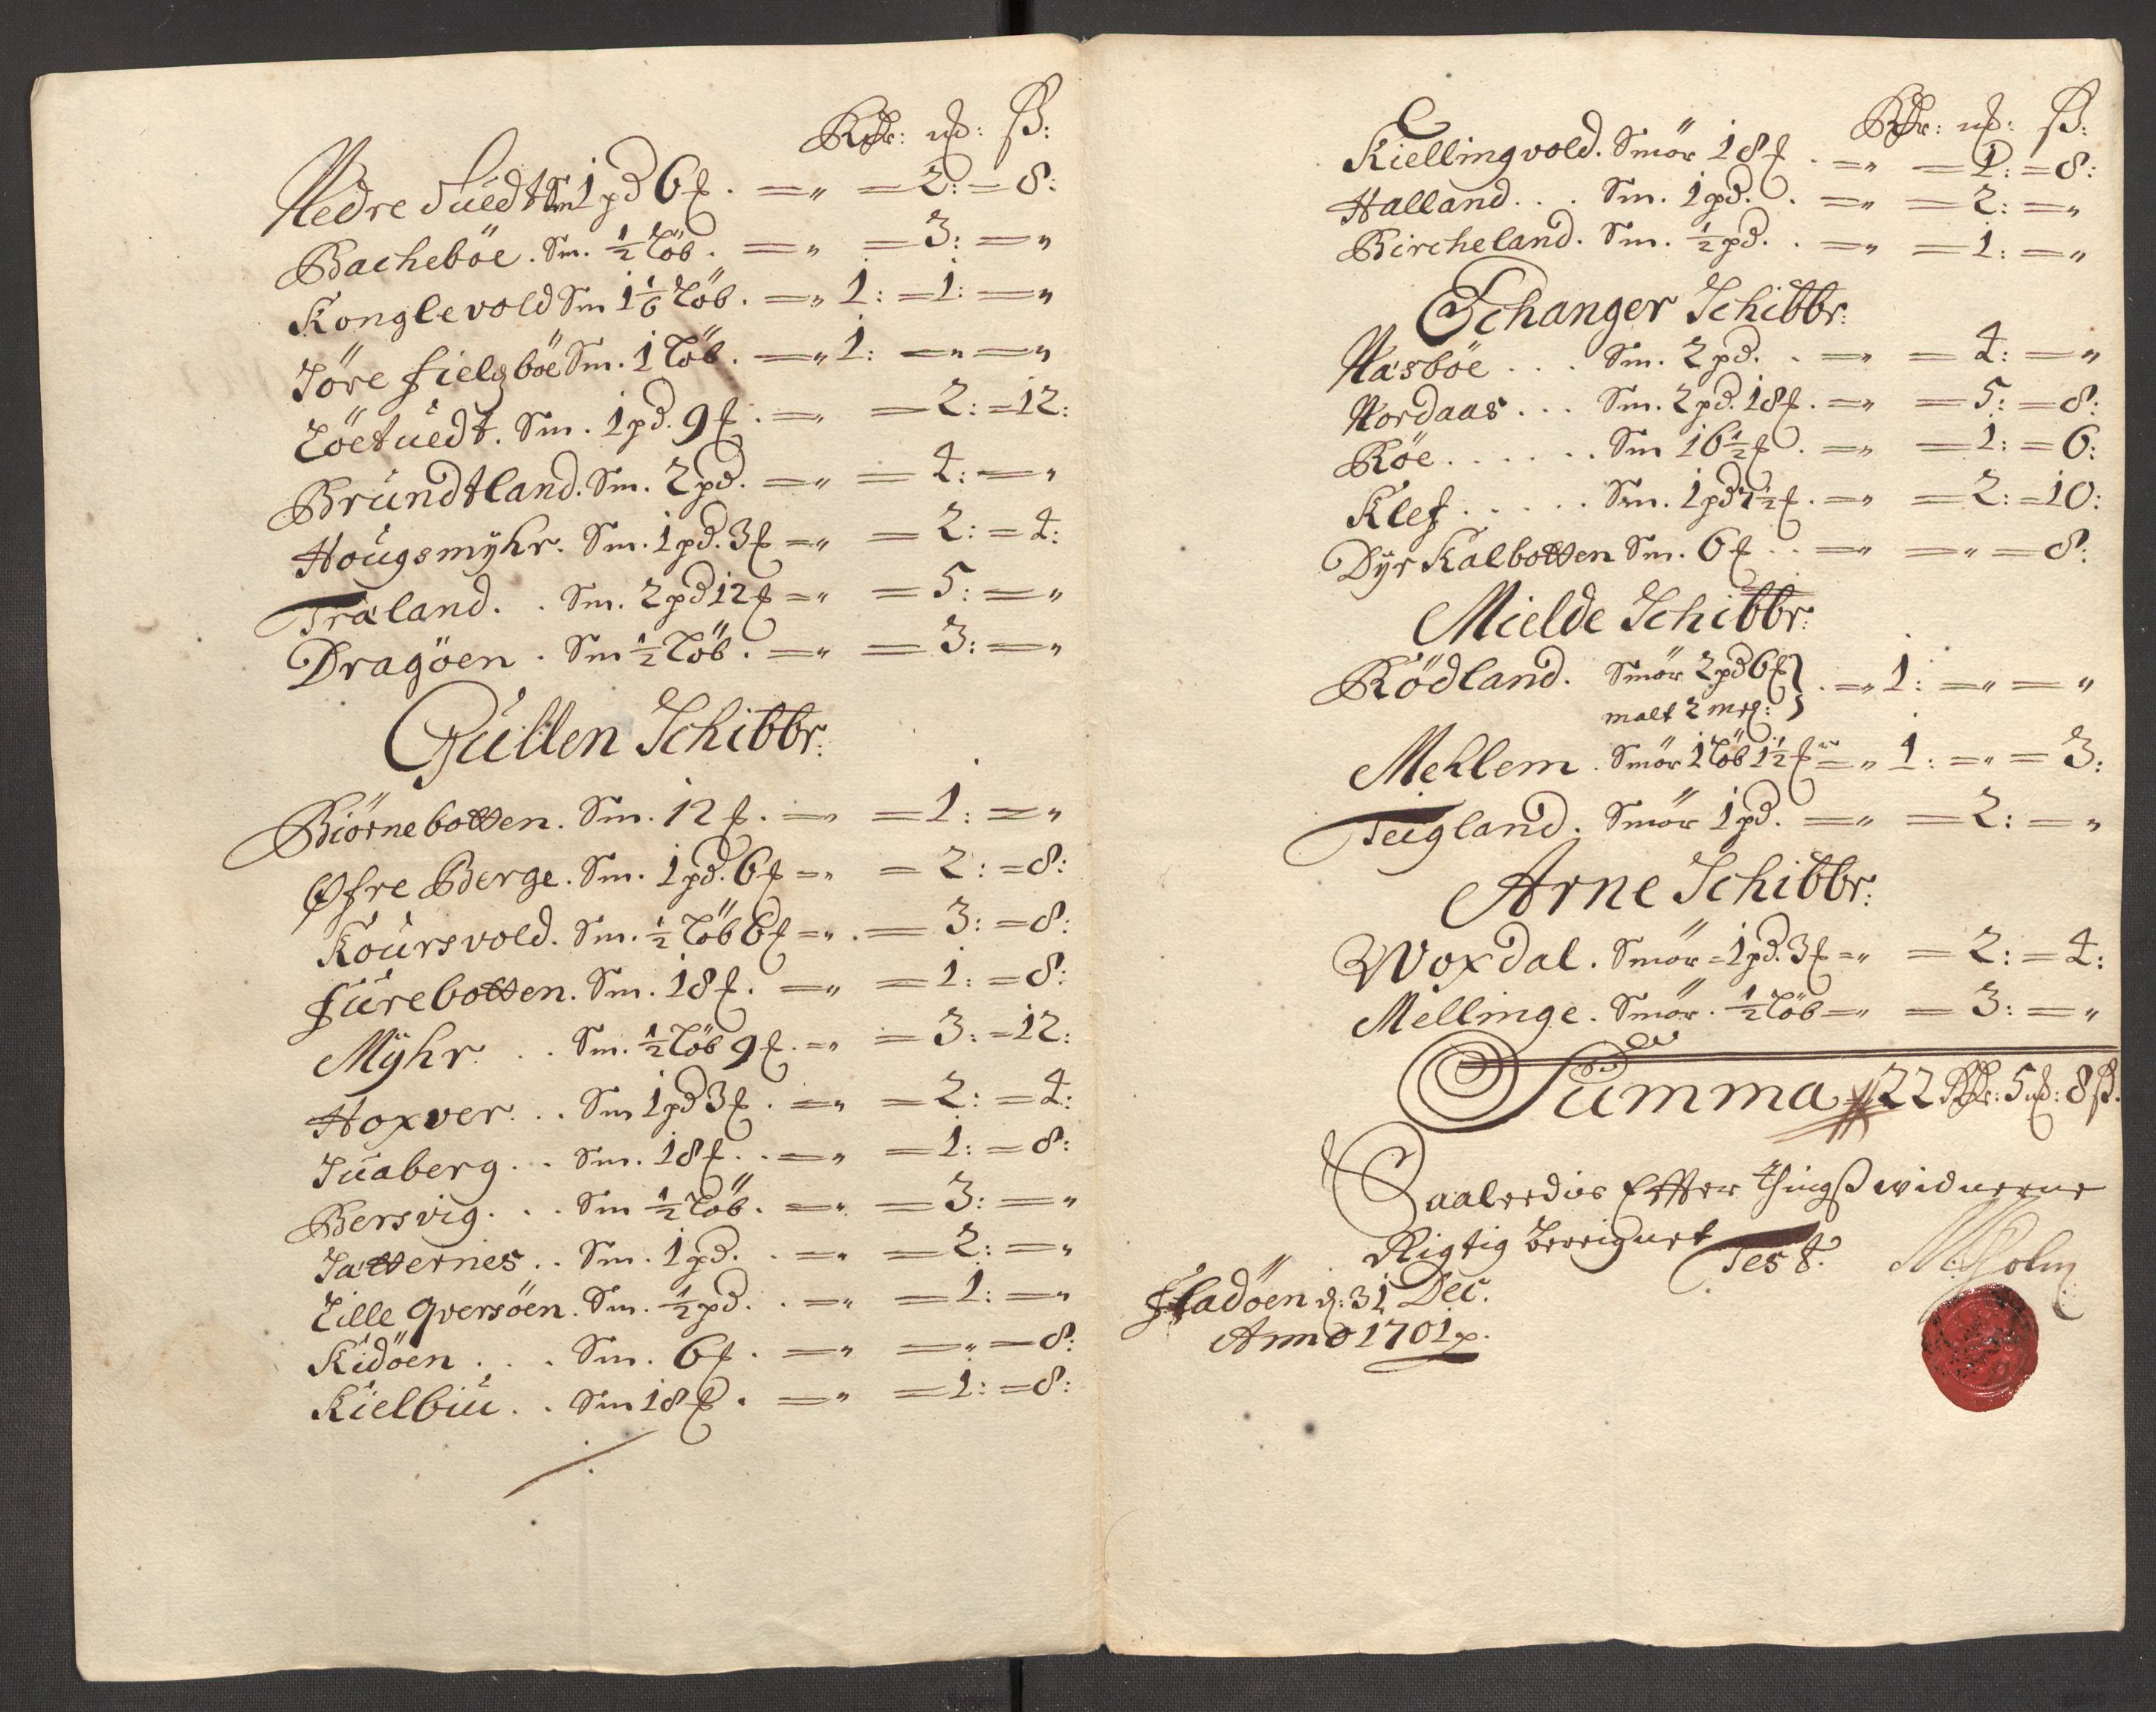 Rdr: mk: ß:
Nedre Tuedt Sm 1 pd 6 ℔. =„ =2:=8:
Bacheböe. Sm. ½ Löb. =„ =3:=„
Konglevold Sm 1 1/6 Löb. =„ 1: =1: =„
Töre fielgböe Sm. 1 Löb. =„ 1: =„ =„
Löetuedt. Sm. 1 pd. 9 ℔. =„ =2:=12:
Brundtland. Sm. 2 pd. =„ =4:=„
Hougsmÿhr. Sm. 1 pd. 3 ℔ =„ =2:=4:
Træland. . Sm. 2 pd 12 ℔ =„ =5:=„
Dragöen. Sm ½ Löb. =„ =3:=„
Gullen Schibbr:
Biörnebotten. Sm. 12 ℔. =„ =1: =„
Øfre Berge. Sm. 1 pd. 6 ℔ =„ =2:=8:
Koursvold. Sm. ½ Löb 6 ℔ =„. =3:=8:
furebotten. Sm. 18 ℔. =„ =1:=8:
Mÿhr. . . Sm. ½ Löb 9 ℔. =„ =3:=12:
Hoxver. . . Sm 1 pd 3 ℔. =„ =2:=4:
Juaberg. . . Sm. 18 ℔. . =„ =1:=8:
Bersvig. . . Sm ½ Löb. =„ =3:=„
Jatternes. . Sm. 1 pd. . =„ =2:=„
Lille qversöen. Sm. ½ pd. . =„ =1:=„
Kidöen. . . Sm. 6 ℔. =„ =„=8:
Kielbiu. . Sm 18 ℔. =„ =1:=8:
Rdr: mk: ß:
Kiellingvold. Smör 18 ℔. =„ =1:=8:
Halland. . . Sm. 1 pd. . =„ =2:=„
Bircheland. Sm. ½ pd. . =„ =1:=„
Echanger Schibbr:
Næsböe. . . Sm. 2 pd. . =„ =4:=„
Nordaas. . . Sm. 2 pd. 18 ℔. =„ =5:=8:
Röe. . . . . . Sm 16½ ℔. =„ =1:=6:
Klef. . . . . Sm. 1 pd 7½ ℔. =„ =2:=10:
Dÿrkalbotten Sm. 6 ℔. . =„ =„=8:
Mielde Schibbr:
Rödland. Smör 2 pd 6 ℔ } . =„ 1: =„ =„
malt 2 mel: }
Mehlem. Smör 1 Löb 1½ ℔ =„ 1: =„ =3:
Teigland. Smör 1 pd. =„ =2:=„
Arne Schibbr:
Woxdal. Smör = 1 pd. 3 ℔ =„ =2:=4:
Mellinge. Smör. ½ Löb =„ =3:=„
Summa 22 Rdr: 5 mk: 8 ß.
Saaledis Effter thingßwidnerne
Rigtig bereignet Test.
NHolm
fladöen d: 31 Dec.
Anno 1701 p.